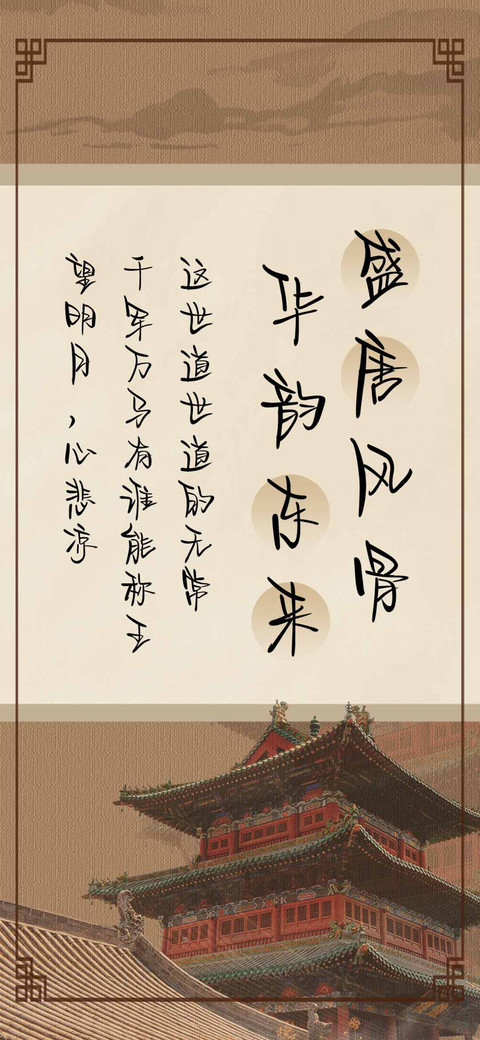 盛唐风骨
华韵东来
这世道世道的无常
千军万马有谁能称王
望明月，心悲凉